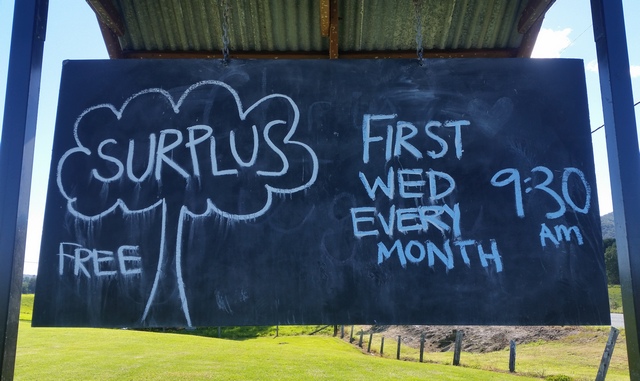 SURPLUS
FREE
FIRST
WED
EVERY
MONTH
9:30
AM